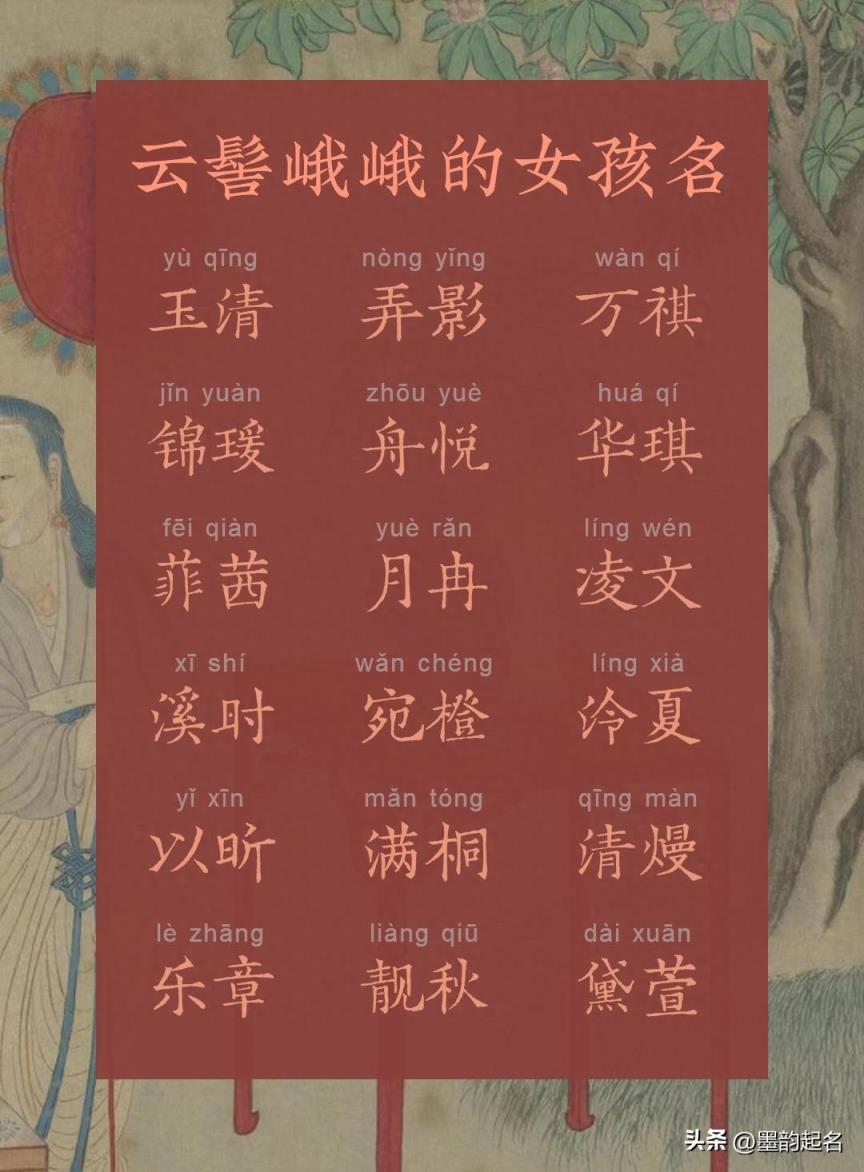 云髻峨峨的女孩名
yù qīng nòng yǐng wàn qí
玉清 弄影 万祺
jǐn yuàn zhōu yuè huá qí
锦瑗 舟悦 华琪
fēi qiàn yuè rǎn líng wén
菲茜 月冉 凌文
xī shí wǎn chéng líng xià
溪时 宛橙 泠夏
yǐ xīn mǎn tóng qīng màn
以昕 满桐 清熳
lè zhāng liàng qiū dài xuān
乐章 靓秋 黛萱
头条 @墨韵起名